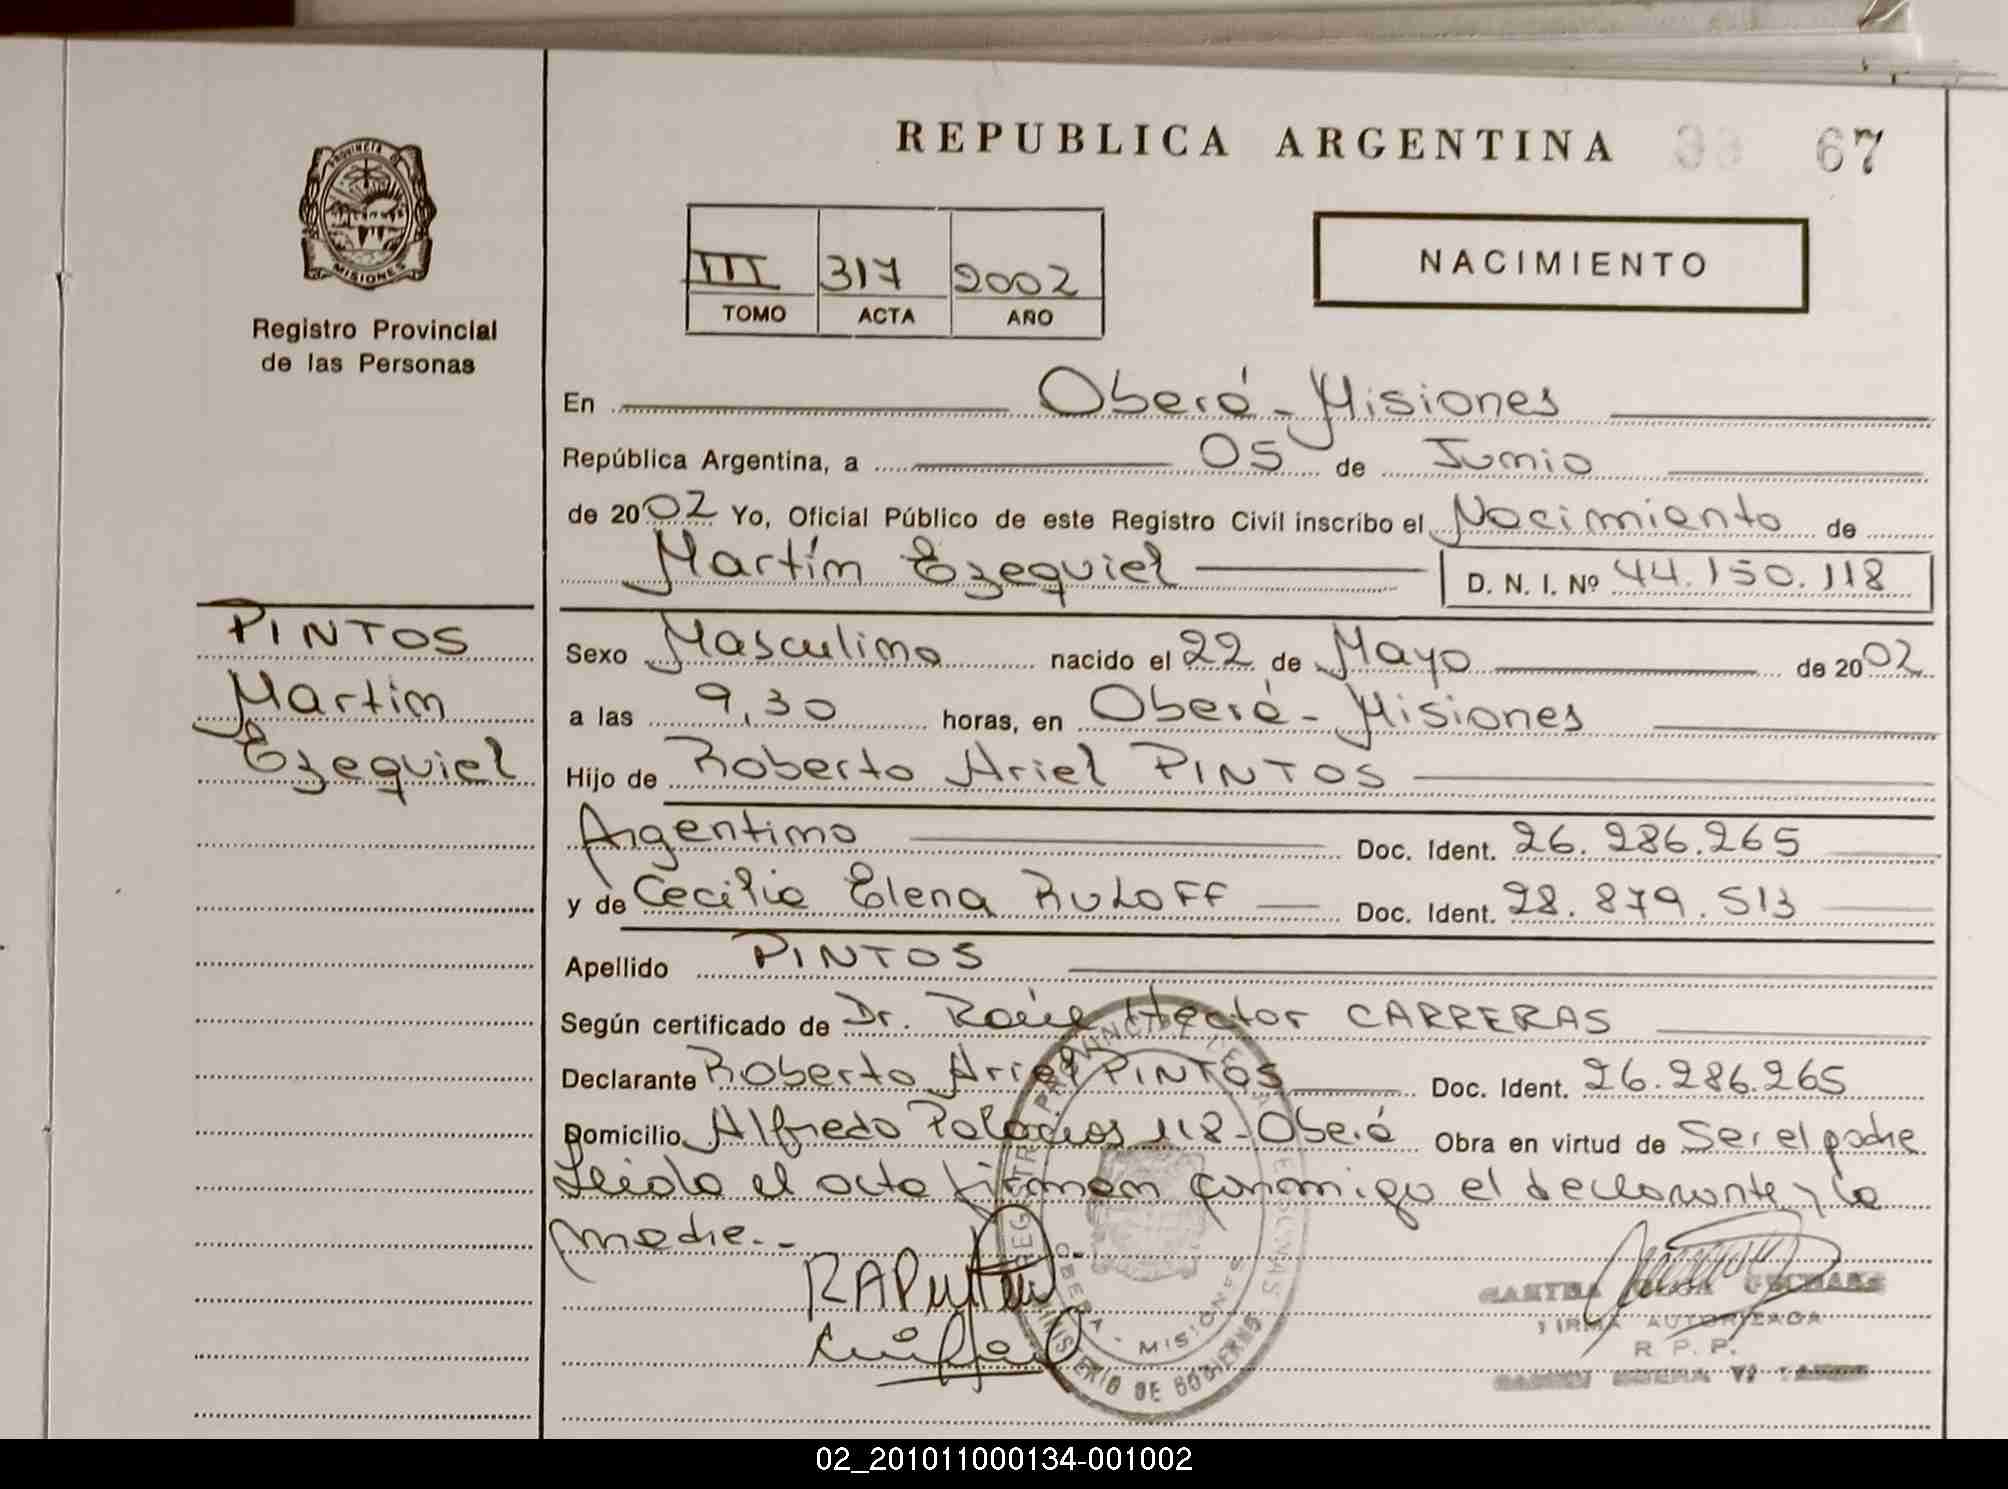 REPUBLICA ARGENTINA 67
PROVINCIA D
MISIONES
Registro Provincial
de las Personas
III 317 2002
TOMO ACTA AÑO
NACIMIENTO
En Oberá - Misiones
República Argentina, a 05 de Junio
de 2002 Yo, Oficial Público de este Registro Civil inscribo el Nacimiento de
Martín Ezequiel D. N. I. Nº 44.150.118
PINTOS
Martín
Ezequiel
Sexo Masculino nacido el 22 de Mayo de 2002
a las 9,30 horas, en Oberá - Misiones
Hijo de Roberto Ariel PINTOS
Argentino Doc. Ident. 26.286.265
y de Cecilia Elena RULOFF Doc. Ident. 28.879.513
Apellido PINTOS
Según certificado de Dr. Raúl Hector CARRERAS
Declarante Roberto Ariel PINTOS Doc. Ident. 26.286.265
Domicilio Alfredo Palacios 118 - Oberá Obra en virtud de Ser el padre
Leida el acta firman conmigo el declarante y la
madre.-
OBERA - MISIONES
MINISTERIO DE GOBIERNO
FIRMA AUTORIZADA
R. P. P.
02_201011000134-001002